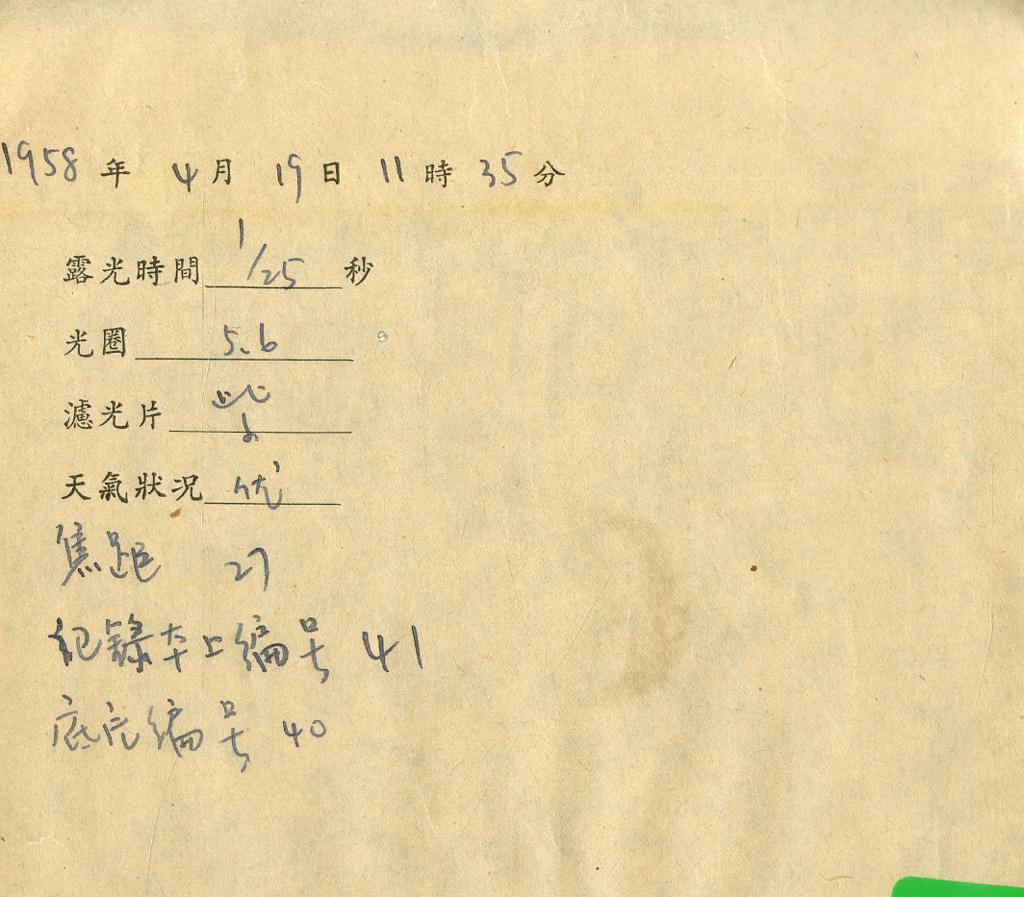 1958 年 4 月 19 日 11 時 35 分
露光時間 1/25 秒
光圈 5.6
濾光片
天氣狀况 优
焦距 27
紀錄本上編号 41
底片編号 40